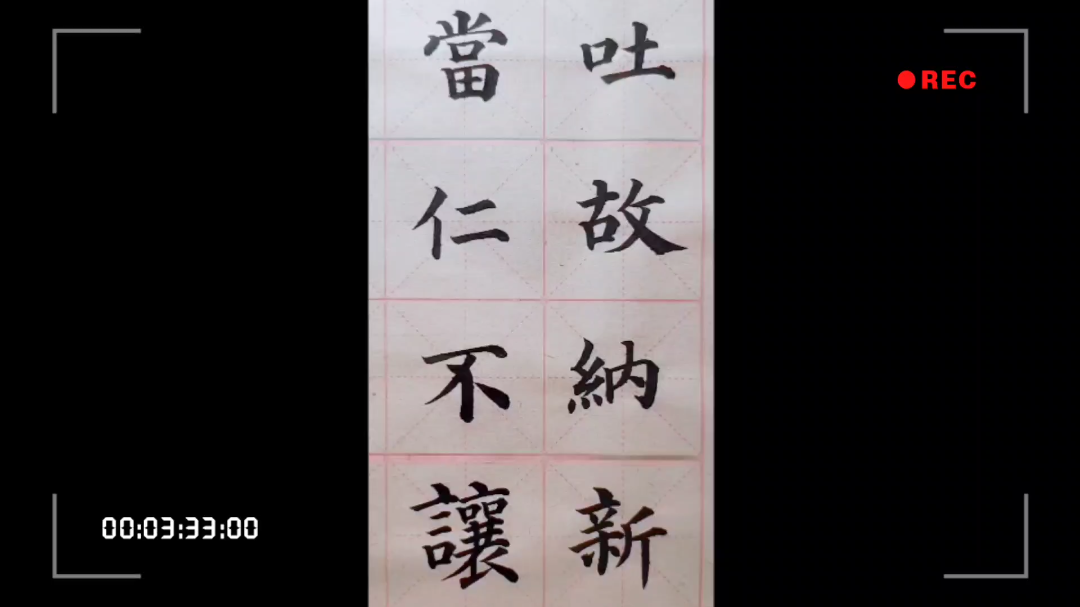 吐故納新
當仁不讓
REC
00:03:33:00